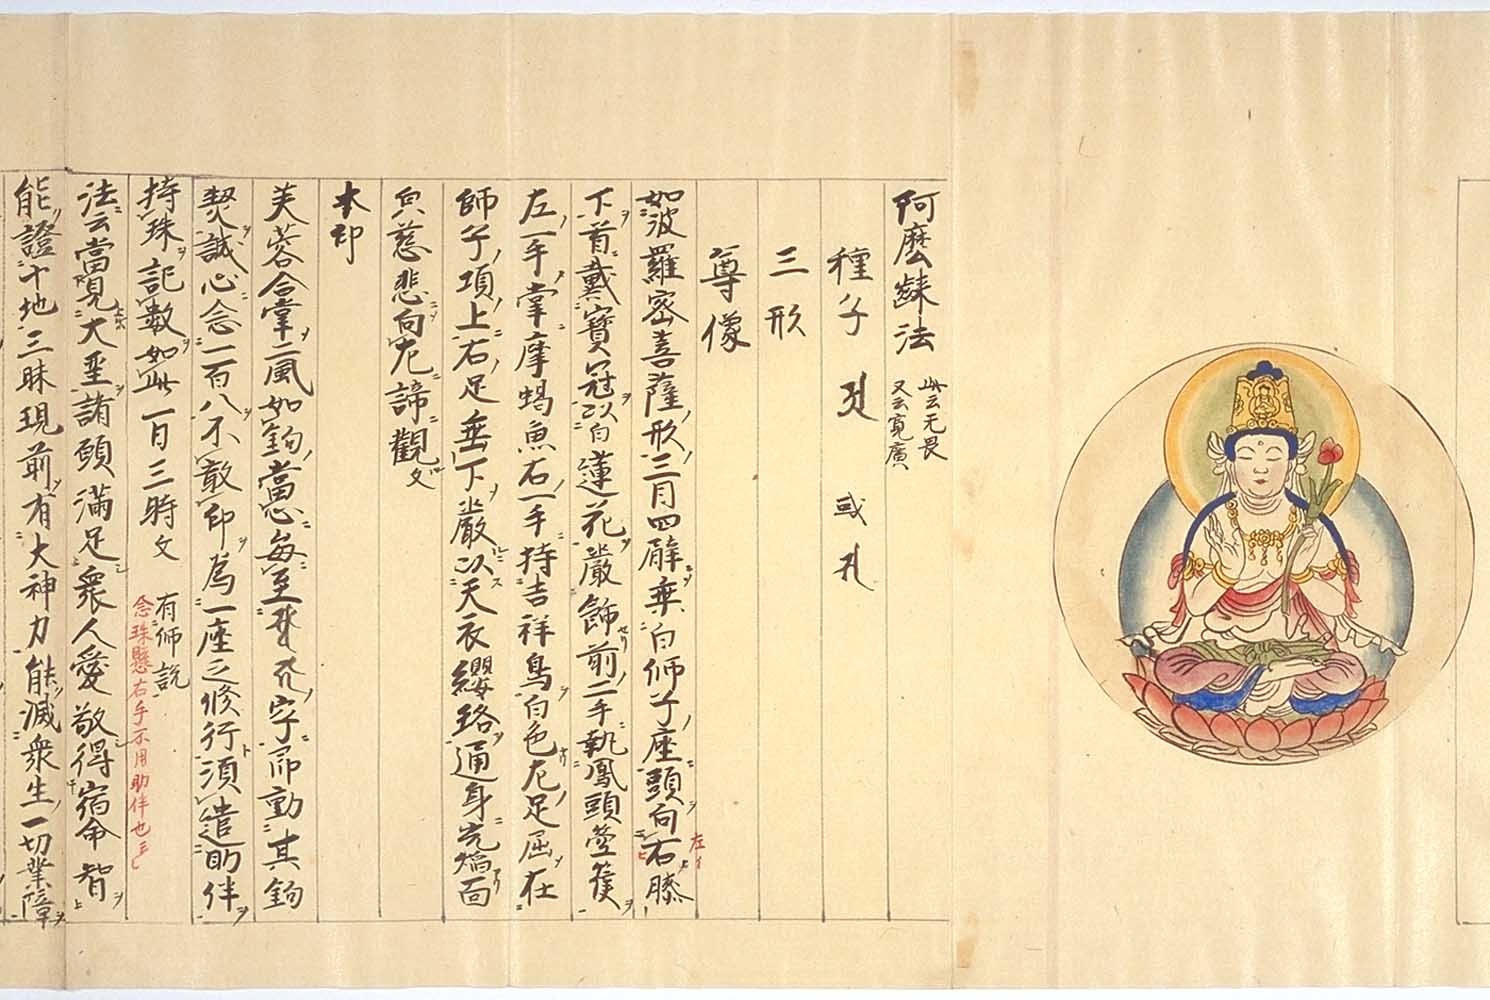 阿麼䴾法 此云无畏
又云寛廣
種子 或
三形
尊像
如波羅密菩薩形三目四臂乗白師子座頭向右膝
左イ
下首戴寶冠以白蓮花嚴飾前二手執鳳頭箜篌
左一手掌摩竭魚右一手持吉祥鳥白色左足屈在
師子項上右足垂下嚴以天衣纓珞通身光焔面
㒵慈悲向左諦觀文
本印
芙蓉合掌二風如鈎當心毎至 字即動其鈎
契誠心念一百八不散印為一座之修行須遣助伴
持珠記數如此一日三時文 有師説
念珠懸右手不用助伴也
法云當見大聖諸願滿足衆人愛敬得宿命智
能證十地三昧現前有大神力能滅衆生一切業障